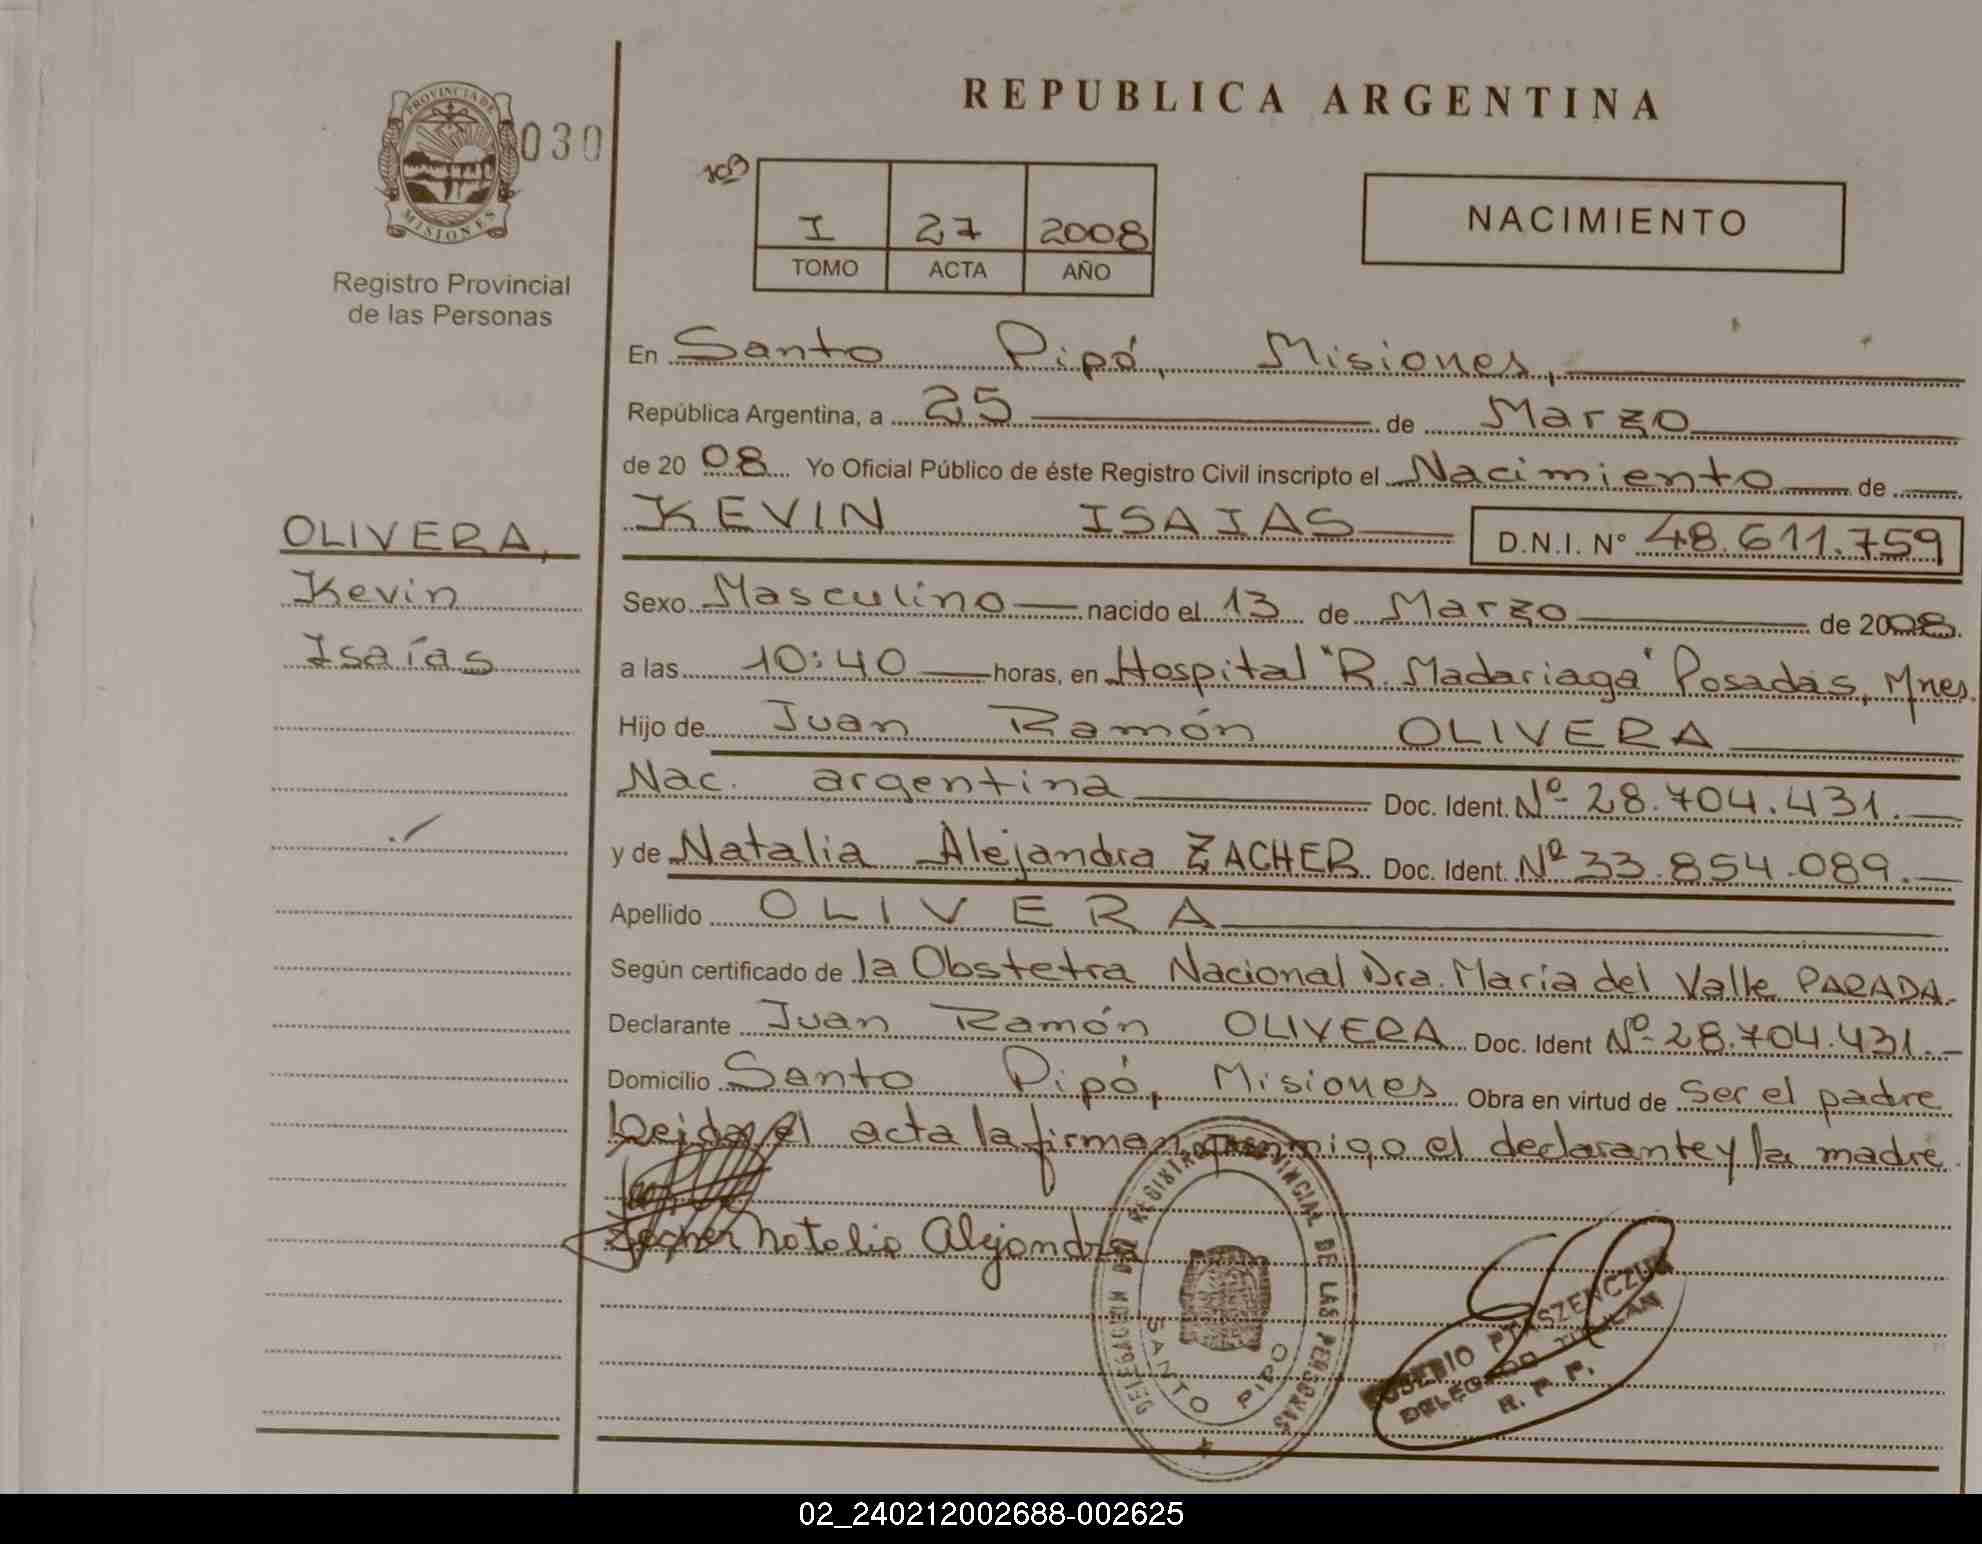 REPUBLICA ARGENTINA
PROVINCIA DE
MISIONES
030
Registro Provincial
de las Personas
103
I 27 2008
TOMO ACTA AÑO
NACIMIENTO
En Santo Pipó, Misiones,
República Argentina, a 25 de Marzo
de 2008 Yo Oficial Público de éste Registro Civil inscripto el Nacimiento de
KEVIN ISAIAS D.N.I. N° 48.611.759
OLIVERA,
Kevin
Isaías
Sexo Masculino nacido el 13 de Marzo de 2008.
a las 10:40 horas, en Hospital "R. Madariaga" Posadas, Mnes.
Hijo de Juan Ramón OLIVERA
Nac. argentina Doc. Ident. Nº 28.704.431.
y de Natalia Alejandra ZACHER Doc. Ident. Nº 33.854.089.
Apellido OLIVERA
Según certificado de la Obstetra Nacional Dra. María del Valle PARADA.
Declarante Juan Ramón OLIVERA Doc. Ident Nº 28.704.431.
Domicilio Santo Pipó, Misiones Obra en virtud de ser el padre
Leida el acta la firman conmigo el declarante y la madre
Zacher Natalia Alejandra
REGISTRO PROVINCIAL DE LAS PERSONAS
SANTO PIPO
EUSEBIO PTASZENCZUK
DELEGADO TITULAR
R. P. P.
02_240212002688-002625